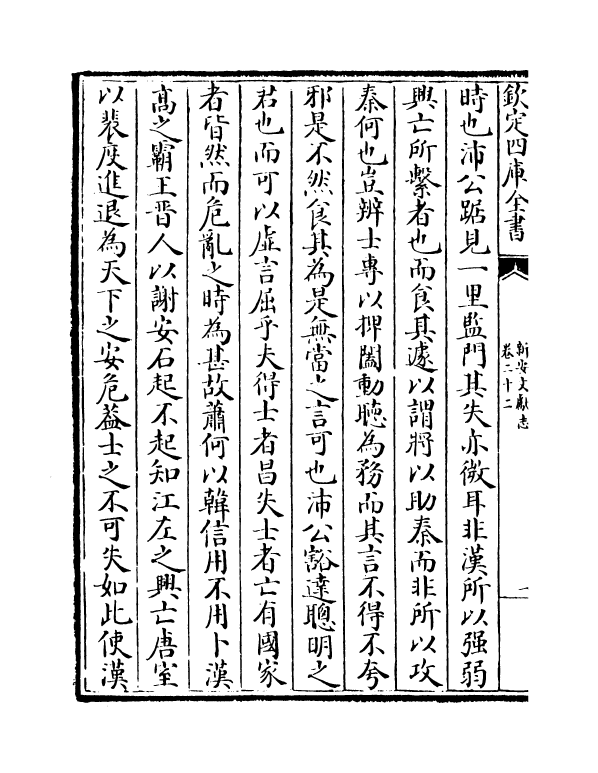 欽定四庫全書
新安文獻志
卷二十二
二
時也沛公踞見一里監門其失亦微耳非漢所以强弱
興亡所繫者也而食其遽以謂將以助秦而非所以攻
秦何也豈辨士專以捭闔動聽為務而其言不得不夸
邪是不然食其為是無當之言可也沛公豁達聰明之
君也而可以虛言屈乎夫得士者昌失士者亡有國家
者皆然而危亂之時為甚故蕭何以韓信用不用卜漢
髙之霸王晋人以謝安石起不起知江左之興亡唐室
以裴度進退為天下之安危葢士之不可失如此使漢